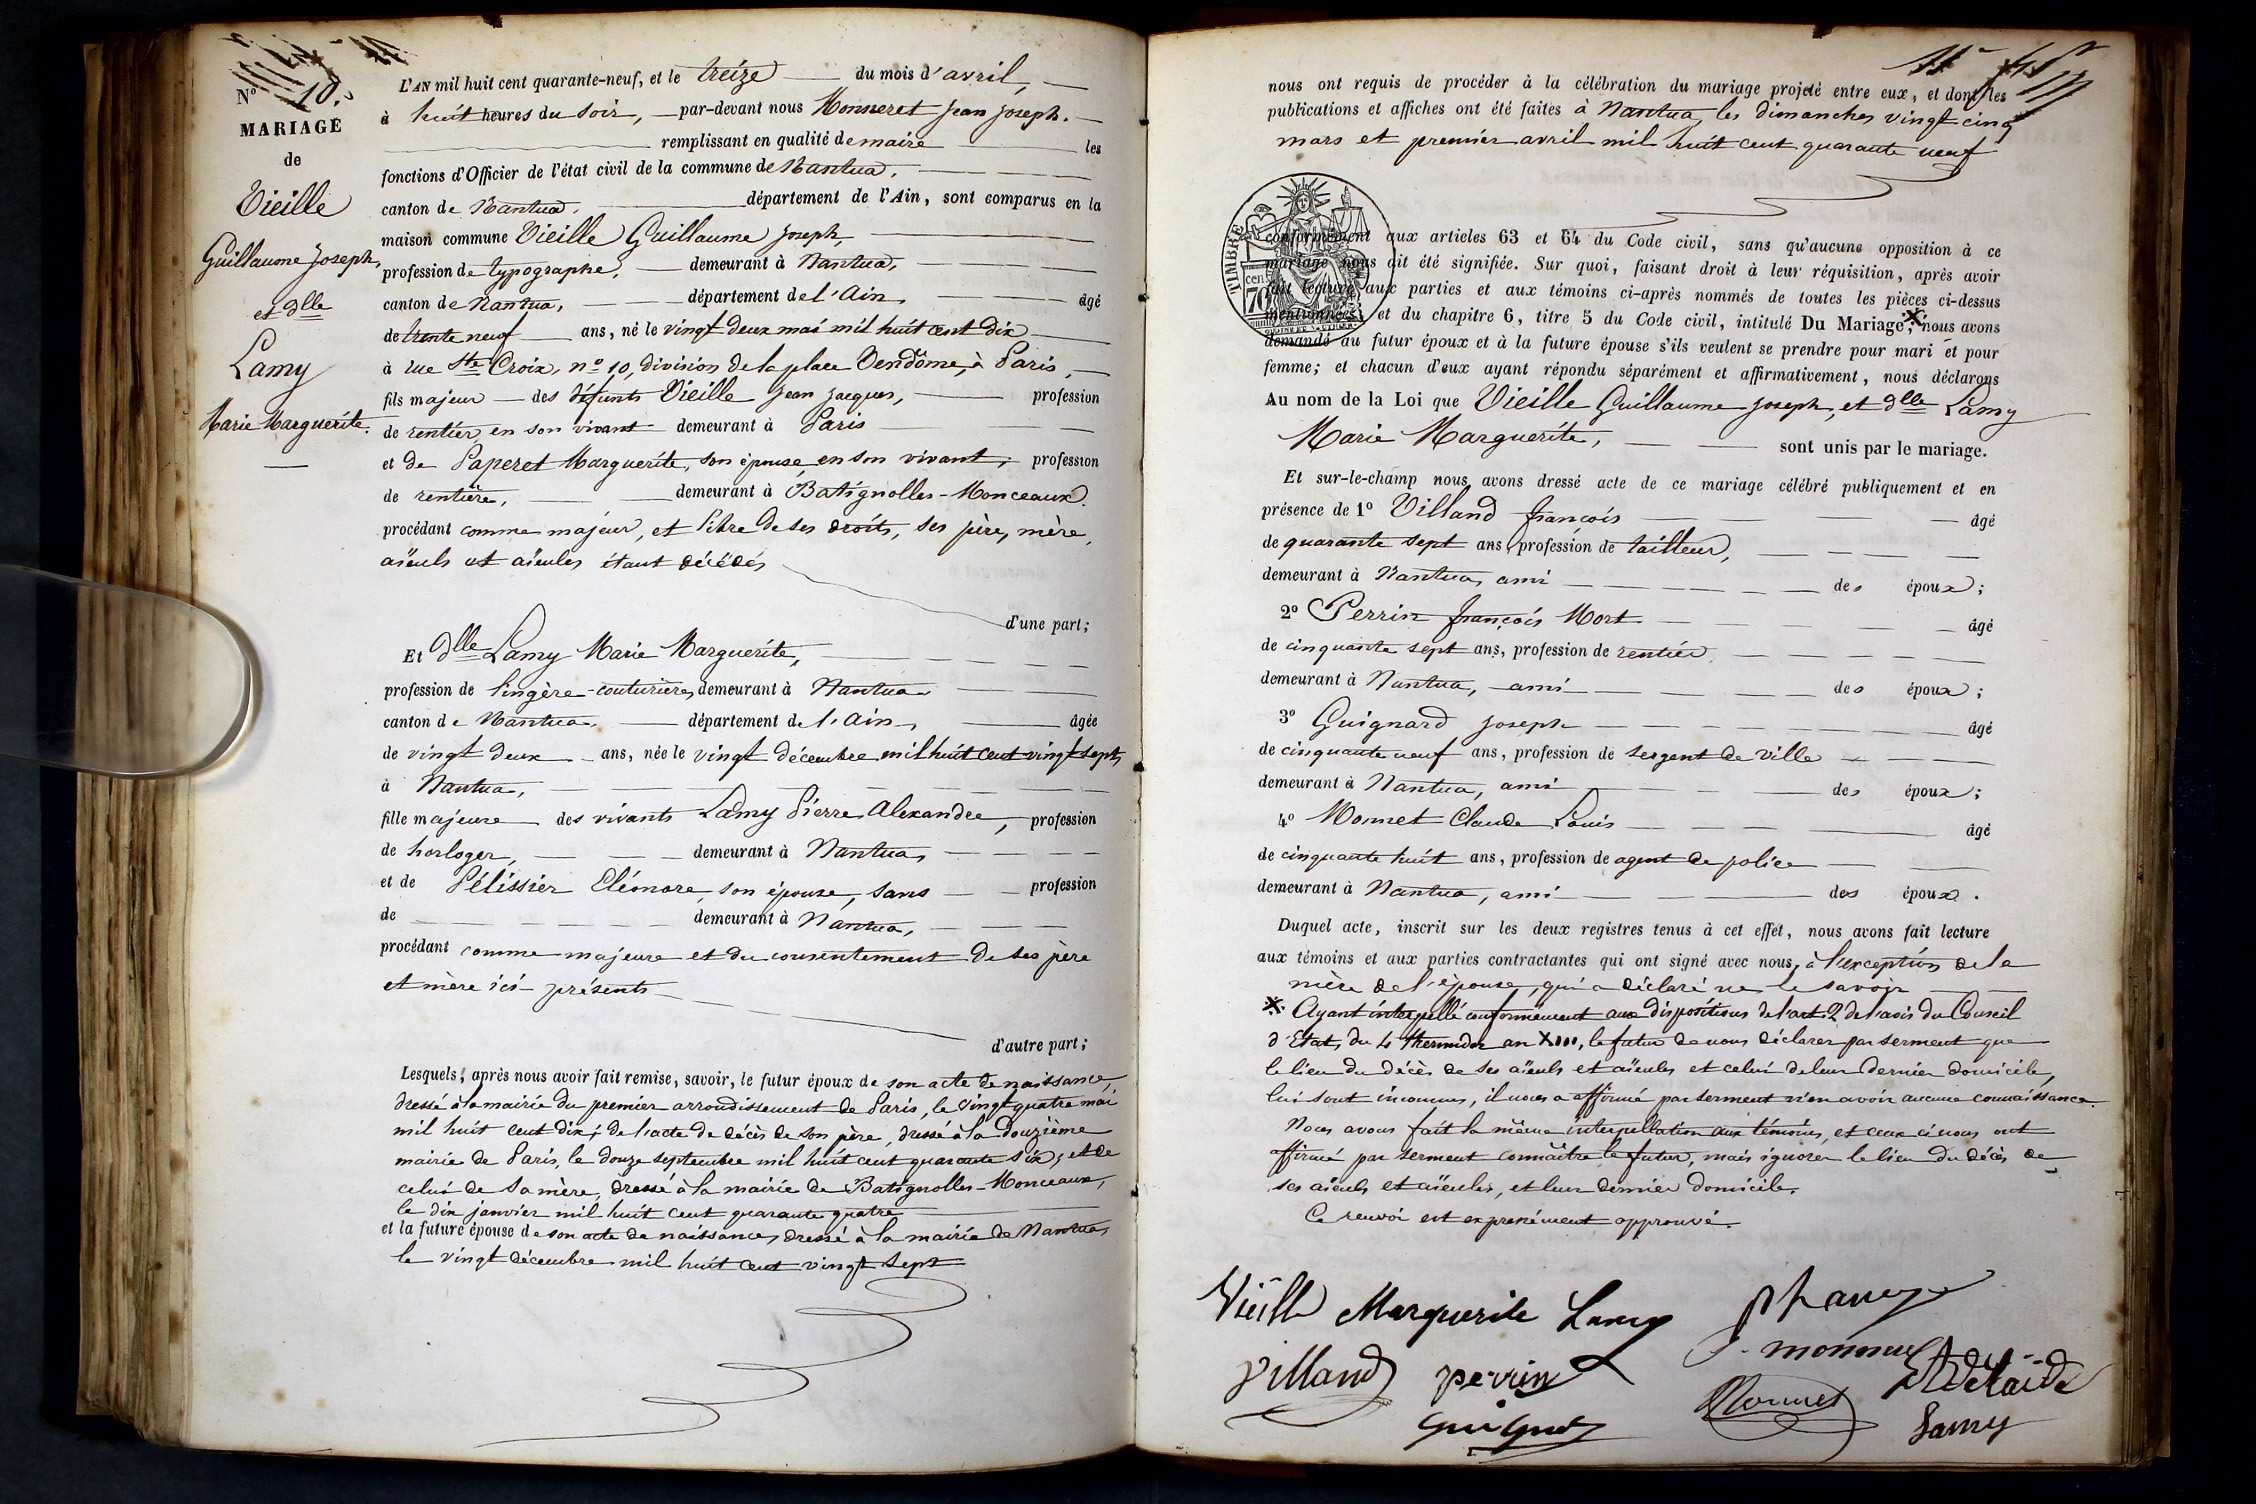 N° 10.
MARIAGE
de
Vieille
Guillaume Joseph,
et dlle
Lamy
Marie Marguerite.
L'AN mil huit cent quarante-neuf, et le treize du mois d'avril,
à huit heures du soir, par-devant nous Monneret Jean Joseph.
remplissant en qualité de maire les
fonctions d'Officier de l'état civil de la commune de Nantua,
canton de Nantua, département de l'Ain, sont comparus en la
maison commune Vieille Guillaume Joseph,
profession de typographe, demeurant à Nantua,
canton de Nantua, département de l'Ain, âgé
de trente neuf ans, né le vingt deux mai mil huit cent dix
à rue Ste Croix, n° 10, division de la place Vendôme, à Paris,
fils majeur des défunts Vieille Jean Jacques, profession
de rentier en son vivant demeurant à Paris
et de Paperet Marguerite, son épouse en son vivant, profession
de rentière, demeurant à Batignolles-Monceaux.
procédant comme majeur, et libre de ses droits, ses père, mère,
aïeuls et aïeules étant décédés
d'une part;
Et dlle Lamy Marie Marguerite,
profession de lingère-couturière, demeurant à Nantua
canton de Nantua, département de l'Ain, âgée
de vingt deux ans, née le vingt décembre mil huit cent vingt sept,
à Nantua,
fille majeure des vivants Lamy Pierre Alexandre, profession
de horloger, demeurant à Nantua,
et de Pélissier Eléonore, son épouse, sans profession
de demeurant à Nantua,
procédant comme majeure et du consentement de ses père
et mère ici présents
d'autre part;
Lesquels, après nous avoir fait remise, savoir, le futur époux de son acte de naissance,
dressé à la mairie du premier arrondissement de Paris, le vingt quatre mai
mil huit cent dix; de l'acte de décès de son père, dressé à la douzième
mairie de Paris, le douze septembre mil huit cent quarante six; et de
celui de sa mère, dressé à la mairie de Batignolles-Monceaux,
le dix janvier mil huit cent quarante quatre
et la future épouse de son acte de naissance, dressé à la mairie de Nantua,
le vingt décembre mil huit cent vingt sept
nous ont requis de procéder à la célébration du mariage projeté entre eux, et dont les
publications et affiches ont été faites à Nantua, les dimanches vingt cinq
mars et premier avril mil huit cent quarante neuf
TIMBRE
cen
70
conformément aux articles 63 et 64 du Code civil, sans qu'aucune opposition à ce
mariage nous ait été signifiée. Sur quoi, faisant droit à leur réquisition, après avoir
fait lecture aux parties et aux témoins ci-après nommés de toutes les pièces ci-dessus
mentionnées, et du chapitre 6, titre 5 du Code civil, intitulé Du Mariage, X nous avons
demandé au futur époux et à la future épouse s'ils veulent se prendre pour mari et pour
femme; et chacun d'eux ayant répondu séparément et affirmativement, nous déclarons
Au nom de la Loi que Vieille Guillaume Joseph, et dlle Lamy
Marie Marguerite, sont unis par le mariage.
Et sur-le-champ nous avons dressé acte de ce mariage célébré publiquement et en
présence de 1° Villand François âgé
de quarante sept ans, profession de tailleur,
demeurant à Nantua, ami des époux;
2° Perrin François Mort âgé
de cinquante sept ans, profession de rentier,
demeurant à Nantua, ami des époux;
3° Guignard Joseph âgé
de cinquante neuf ans, profession de sergent de ville
demeurant à Nantua, ami des époux;
4° Monnet Claude Louis âgé
de cinquante huit ans, profession de agent de police
demeurant à Nantua, ami des époux.
Duquel acte, inscrit sur les deux registres tenus à cet effet, nous avons fait lecture
aux témoins et aux parties contractantes qui ont signé avec nous, à l'exception de la
mère de l'épouse, qui a déclaré ne le savoir
X. Ayant interpellé conformément aux dispositions de l'art. 2 de l'avis du Conseil
d'Etat, du 4 thermidor an XIII, le futur de nous déclarer par serment que
le lieu du décès de ses aïeuls et aïeules et celui de leur dernier domicile,
lui sont inconnus, il nous a affirmé par serment n'en avoir aucune connaissance.
Nous avons fait la même interpellation aux témoins, et ceux ci nous ont
affirmé par serment connaître le futur, mais ignorer le lieu du décès de
ses aïeuls et aïeules, et leur dernier domicile.
Ce renvoi est expressément approuvé.
Vieille Marguerite Lamy
Villand Perrin
Monnet Adélaïde
Lamy